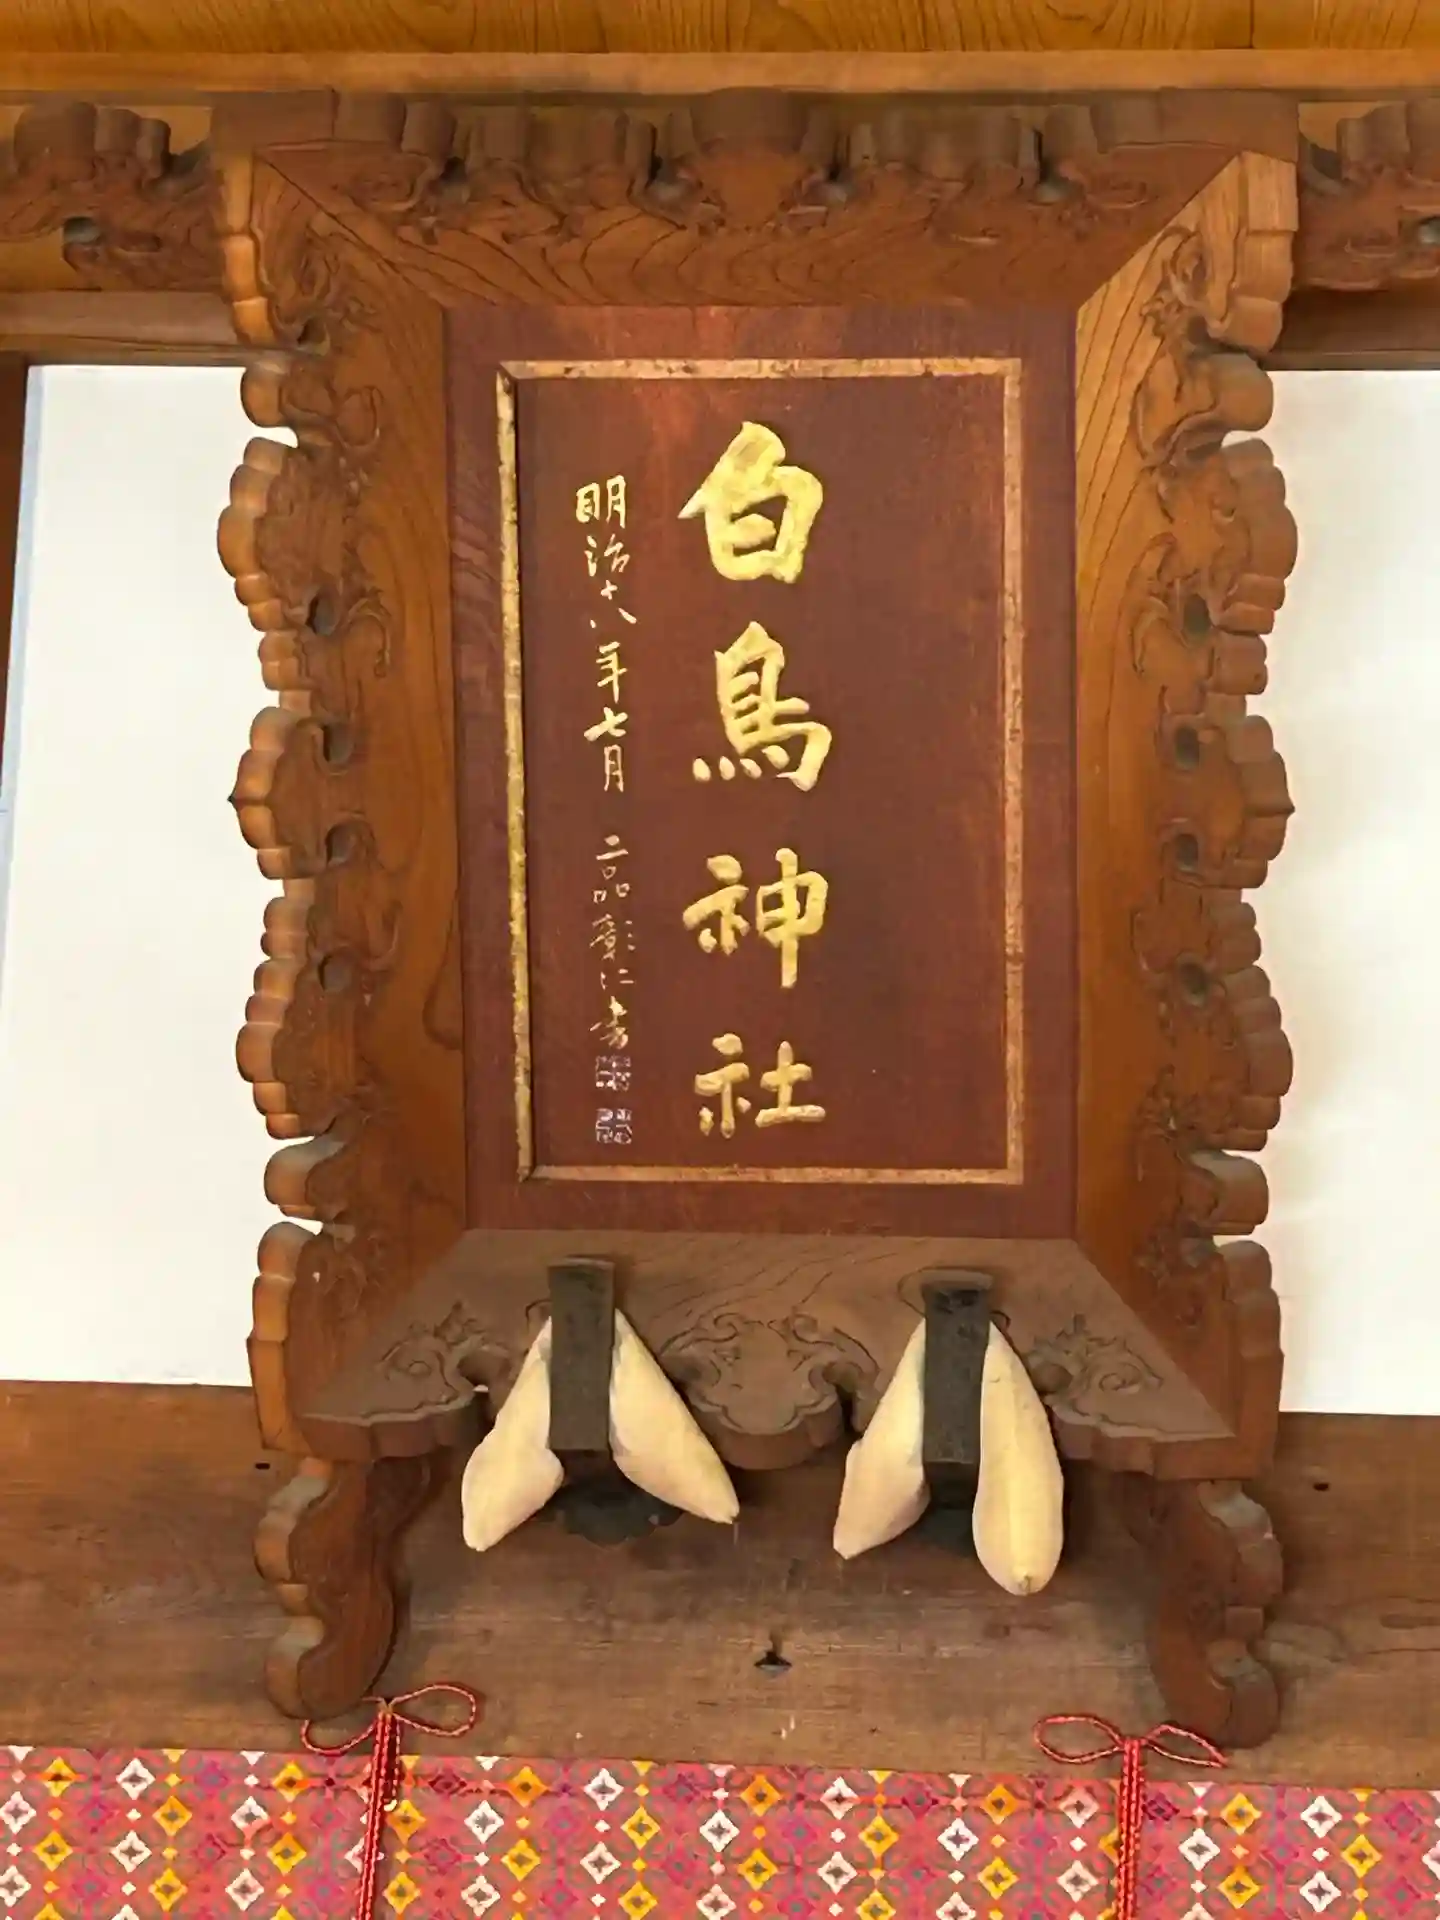 白鳥神社
明治十八年七月 二品彰仁書